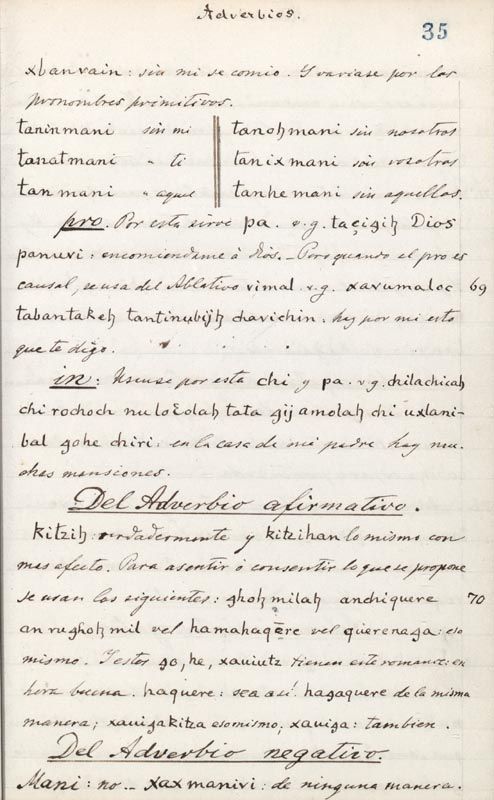 Adverbios.
35
xbanvain: sin mi se comio. Y variase por los
pronombres primitivos.
taninmani sin mi tanohmani sin nosotros
tanatmani " ti tanixmani sin vosotros
tanmani " aquel tanhemani sin aquellos.
pro. Por esta sirve pa. v.g. Dios
panuvi: encomiendame à Dios. Pero quando el pro es
causal, se usa del Ablativo vimal v.g. xavumaloc 69
tabantakeh chavichin: hay por mi esto
que te digo.
in: Usense por esta chi y pa. v.g. chilachicah
chi rochoch tata amolah chi uxlani-
bal gohe chiri: en la casa de mi padre hay mu-
chas mansiones.
Del Adverbio afirmativo.
kitzih: verdadermente y kitzihan lo mismo con
mas efecto. Para asentir ó consentir lo que se propone
se usan los siguientes: ghoh milah anchiquere 70
an rughoh mil vel hamahaqere vel querenaga: eso
mismo. Y estos go, he, xaviutz tienen este romance: en
hora buena. haquere: sea así. hagaquere de la misma
manera; xavigakitza eso mismo; xaviga: tambien.
Del Adverbio negativo.
Mani: no. – xaxmanivi: de ninguna manera.